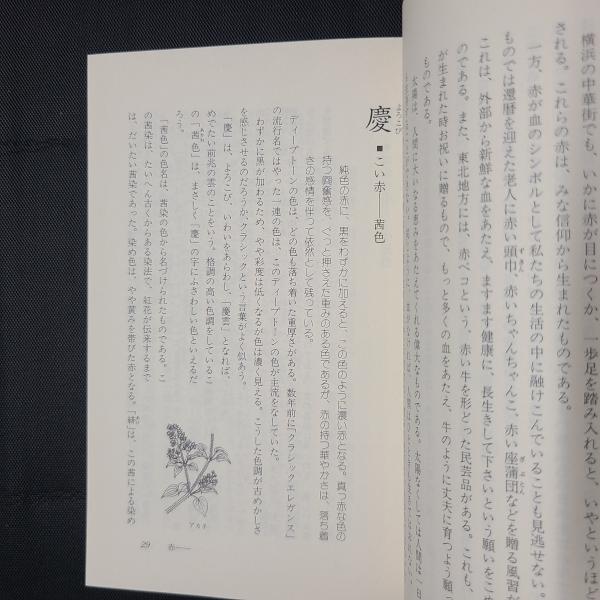 横浜の中華街でも、いかに赤が目につくか、一歩足を踏み入れると、いやというほど
される。これらの赤は、みな信仰から生まれたものである。
一方、赤が血のシンボルとして私たちの生活の中に融けこんでいることも見逃せない。
ものでは還暦を迎えた老人に赤い頭巾、赤いちゃんちゃんこ、赤い座蒲団などを贈る風習が
ずきん
ざぶとん
これは、外部から新鮮な血をあたえ、ますます健康に、長生きして下さいという願いをこめ
のである。また、東北地方には、赤ベコという、赤い牛を形どった民芸品がある。これも、
が生まれた時お祝いに贈るもので、もっと多くの血をあたえ、牛のように丈夫に育つよう願
ものである。
太陽は、人間に大いなる恵みをあたえてくれる偉大なものである。太陽なくしては人間は一日
慶
よろこび
■こい赤──茜色
純色の赤に、黒をわずかに加えると、この色のように濃い赤となる。真っ赤な色の
持つ興奮感を、ぐっと押さえた重みのある色であるが、赤の持つ華やかさは、落ち着
きの感情を伴って依然として残っている。
ディープトーンの色は、どの色も落ち着いた重厚さがある。数年前に「クラシックエレガンス」
の流行名ではやった一連の色は、このディープトーンの色が主流をなしていた。
わずかに黒が加わるため、やや彩度は低くなるが色は濃く見える。こうした色調が古めかしさ
を感じさせるのだろうか、クラシックという言葉がよく似あう。
「慶」は、よろこび、いわいをあらわし、「慶雲」となれば、
めでたい前兆の雲のことをいう。格調の高い色調をしているこ
の「茜色」は、まさしく「慶」の字にふさわしい色といえるだ
あかね
ろう。
「茜色」の色名は、茜染の色から名づけられたものである。こ
の茜染は、たいへん古くからある染法で、紅花が伝来するまで
は、だいたい茜染であった。染め色は、やや黄みを帯びた赤となる。「緋」は、この茜による染め
アカネ
29 赤──